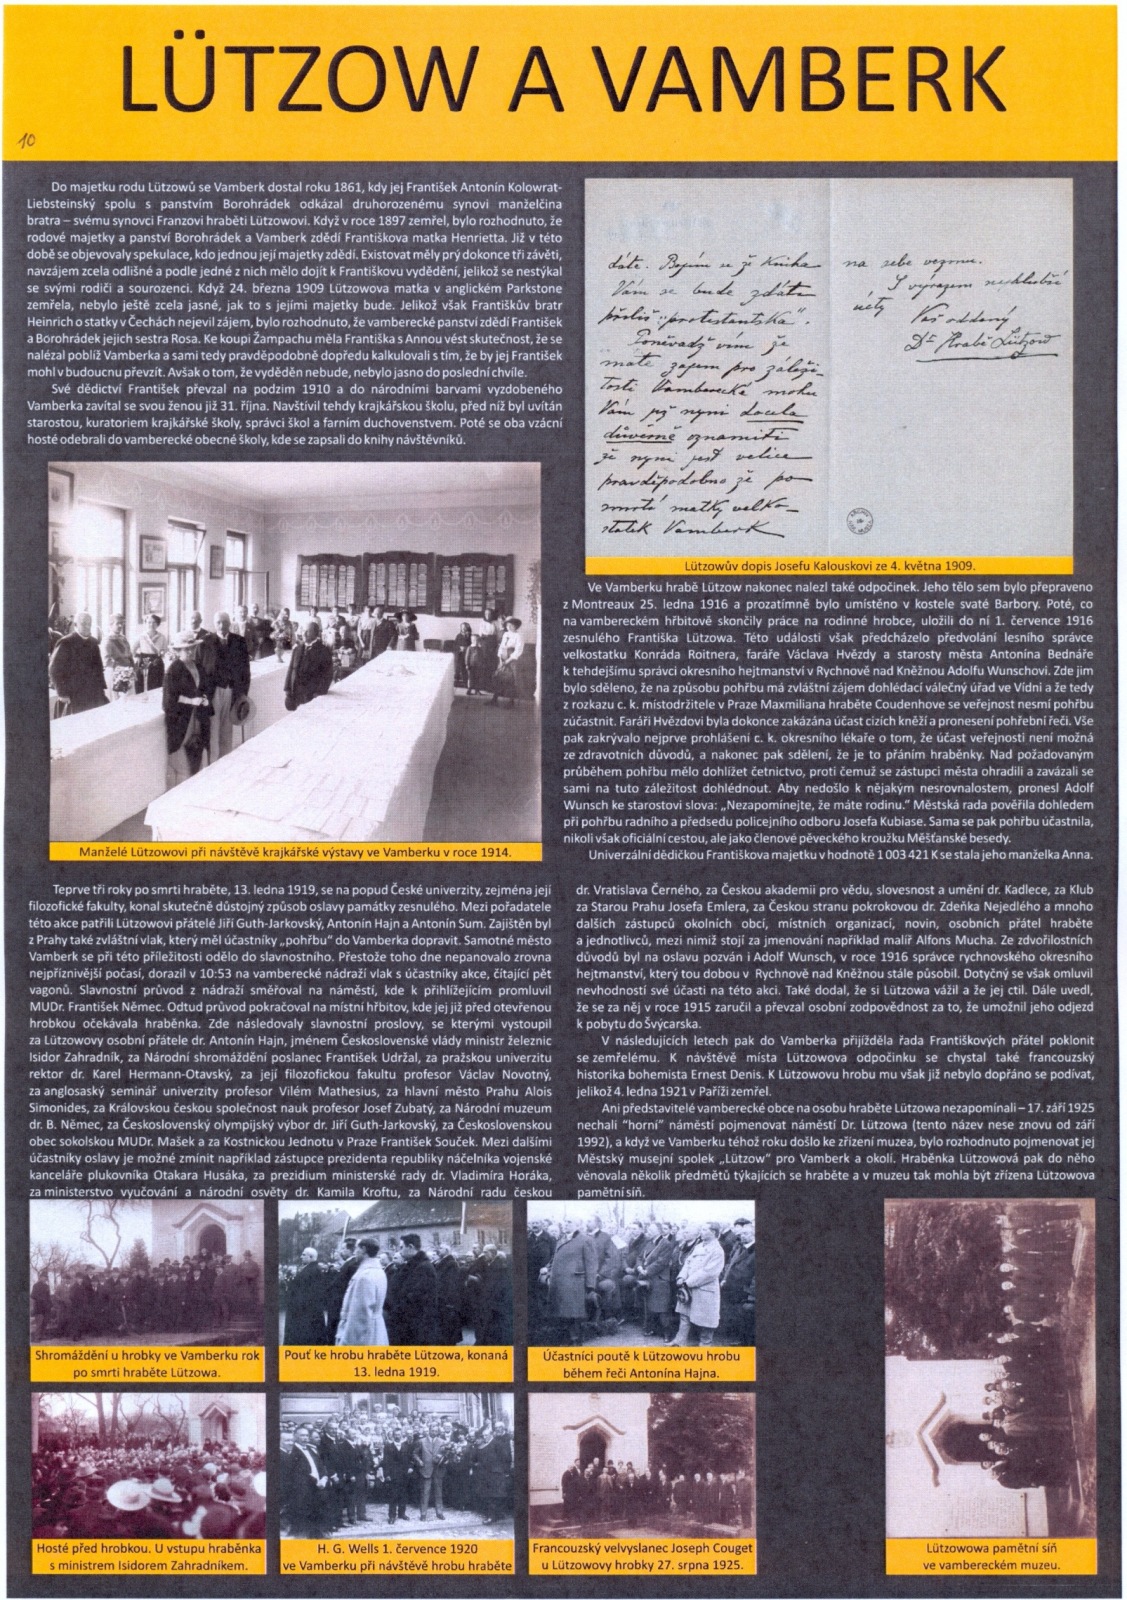 LÜTZOW A VAMBERK
10
Do majetku rodu Lützowů se Vamberk dostal roku 1861, kdy jej František Antonín Kolowrat-
Liebsteinský spolu s panstvím Borohrádek odkázal druhorozenému synovi manželčina
bratra – svému synovci Franzovi hraběti Lützowovi. Když v roce 1897 zemřel, bylo rozhodnuto, že
rodové majetky a panství Borohrádek a Vamberk zdědí Františkova matka Henrietta. Již v této
době se objevovaly spekulace, kdo jednou její majetky zdědí. Existovat měly prý dokonce tři závěti,
navzájem zcela odlišné a podle jedné z nich mělo dojít k Františkovu vydědění, jelikož se nestýkal
se svými rodiči a sourozenci. Když 24. března 1909 Lützowova matka v anglickém Parkstone
zemřela, nebylo ještě zcela jasné, jak to s jejími majetky bude. Jelikož však Františkův bratr
Heinrich o statky v Čechách nejevil zájem, bylo rozhodnuto, že vamberecké panství zdědí František
a Borohrádek jejich sestra Rosa. Ke koupi Žampachu měla Františka s Annou vést skutečnost, že se
nalézal poblíž Vamberka a sami tedy pravděpodobně dopředu kalkulovali s tím, že by jej František
mohl v budoucnu převzít. Avšak o tom, že vyděděn nebude, nebylo jasno do poslední chvíle.
Své dědictví František převzal na podzim 1910 a do národními barvami vyzdobeného
Vamberka zavítal se svou ženou již 31. října. Navštívil tehdy krajkářskou školu, před níž byl uvítán
starostou, kuratoriem krajkářské školy, správci škol a farním duchovenstvem. Poté se oba vzácní
hosté odebrali do vamberecké obecné školy, kde se zapsali do knihy návštěvníků.
Manželé Lützowovi při návštěvě krajkářské výstavy ve Vamberku v roce 1914.
dáte. Bojím se že Kniha
Vám se bude zdáti
příliš „protestantská“.
Poněvadž vím že
máte zájem pro záleži-
tosti Vamberecké mohu
Vám již nyní docela
důvěrně oznamiti
že nyní jest velice
pravděpodobno že po
smrti matky velko-
statek Vamberk
na sebe vezmu.
S výrazem nejhlubší
úcty Váš oddaný
Dr Hrabě Lützow
Lützowův dopis Josefu Kalouskovi ze 4. května 1909.
Ve Vamberku hrabě Lützow nakonec nalezl také odpočinek. Jeho tělo sem bylo přepraveno
z Montreaux 25. ledna 1916 a prozatímně bylo umístěno v kostele svaté Barbory. Poté, co
na vambereckém hřbitově skončily práce na rodinné hrobce, uložili do ní 1. července 1916
zesnulého Františka Lützowa. Této události však předcházelo předvolání lesního správce
velkostatku Konráda Roitnera, faráře Václava Hvězdy a starosty města Antonína Bednáře
k tehdejšímu správci okresního hejtmanství v Rychnově nad Kněžnou Adolfu Wunschovi. Zde jim
bylo sděleno, že na způsobu pohřbu má zvláštní zájem dohlédací válečný úřad ve Vídni a že tedy
z rozkazu c. k. místodržitele v Praze Maxmiliana hraběte Coudenhove se veřejnost nesmí pohřbu
zúčastnit. Faráři Hvězdovi byla dokonce zakázána účast cizích kněží a pronesení pohřební řeči. Vše
pak zakrývalo nejprve prohlášení c. k. okresního lékaře o tom, že účast veřejnosti není možná
ze zdravotních důvodů, a nakonec pak sdělení, že je to přáním hraběnky. Nad požadovaným
průběhem pohřbu mělo dohlížet četnictvo, proti čemuž se zástupci města ohradili a zavázali se
sami na tuto záležitost dohlédnout. Aby nedošlo k nějakým nesrovnalostem, pronesl Adolf
Wunsch ke starostovi slova: „Nezapomínejte, že máte rodinu.“ Městská rada pověřila dohledem
při pohřbu radního a předsedu policejního odboru Josefa Kubiase. Sama se pak pohřbu účastnila,
nikoli však oficiální cestou, ale jako členové pěveckého kroužku Měšťanské besedy.
Univerzální dědičkou Františkova majetku v hodnotě 1 003 421 K se stala jeho manželka Anna.
Teprve tři roky po smrti hraběte, 13. ledna 1919, se na popud České univerzity, zejména její
filozofické fakulty, konal skutečně důstojný způsob oslavy památky zesnulého. Mezi pořadatele
této akce patřili Lützowovi přátelé Jiří Guth-Jarkovský, Antonín Hajn a Antonín Sum. Zajištěn byl
z Prahy také zvláštní vlak, který měl účastníky „pohřbu“ do Vamberka dopravit. Samotné město
Vamberk se při této příležitosti odělo do slavnostního. Přestože toho dne nepanovalo zrovna
nejpříznivější počasí, dorazil v 10:53 na vamberecké nádraží vlak s účastníky akce, čítající pět
vagonů. Slavnostní průvod z nádraží směřoval na náměstí, kde k přihlížejícím promluvil
MUDr. František Němec. Odtud průvod pokračoval na místní hřbitov, kde jej již před otevřenou
hrobkou očekávala hraběnka. Zde následovaly slavnostní proslovy, se kterými vystoupil
za Lützowovy osobní přátele dr. Antonín Hajn, jménem Československé vlády ministr železnic
Isidor Zahradník, za Národní shromáždění poslanec František Udržal, za pražskou univerzitu
rektor dr. Karel Hermann-Otavský, za její filozofickou fakultu profesor Václav Novotný,
za anglosaský seminář univerzity profesor Vilém Mathesius, za hlavní město Prahu Alois
Simonides, za Královskou českou společnost nauk profesor Josef Zubatý, za Národní muzeum
dr. B. Němec, za Československý olympijský výbor dr. Jiří Guth-Jarkovský, za Československou
obec sokolskou MUDr. Mašek a za Kostnickou Jednotu v Praze František Souček. Mezi dalšími
účastníky oslavy je možné zmínit například zástupce prezidenta republiky náčelníka vojenské
kanceláře plukovníka Otakara Husáka, za prezidium ministerské rady dr. Vladimíra Horáka,
za ministerstvo vyučování a národní osvěty dr. Kamila Kroftu, za Národní radu českou
dr. Vratislava Černého, za Českou akademii pro vědu, slovesnost a umění dr. Kadlece, za Klub
za Starou Prahu Josefa Emlera, za Českou stranu pokrokovou dr. Zdeňka Nejedlého a mnoho
dalších zástupců okolních obcí, místních organizací, novin, osobních přátel hraběte
a jednotlivců, mezi nimiž stojí za jmenování například malíř Alfons Mucha. Ze zdvořilostních
důvodů byl na oslavu pozván i Adolf Wunsch, v roce 1916 správce rychnovského okresního
hejtmanství, který tou dobou v Rychnově nad Kněžnou stále působil. Dotyčný se však omluvil
nevhodností své účasti na této akci. Také dodal, že si Lützowa vážil a že jej ctil. Dále uvedl,
že se za něj v roce 1915 zaručil a převzal osobní zodpovědnost za to, že umožnil jeho odjezd
k pobytu do Švýcarska.
V následujících letech pak do Vamberka přijížděla řada Františkových přátel poklonit
se zemřelému. K návštěvě místa Lützowova odpočinku se chystal také francouzský
historika bohemista Ernest Denis. K Lützowovu hrobu mu však již nebylo dopřáno se podívat,
jelikož 4. ledna 1921 v Paříži zemřel.
Ani představitelé vamberecké obce na osobu hraběte Lützowa nezapomínali – 17. září 1925
nechali "horní" náměstí pojmenovat náměstí Dr. Lützowa (tento název nese znovu od září
1992), a když ve Vamberku téhož roku došlo ke zřízení muzea, bylo rozhodnuto pojmenovat jej
Městský musejní spolek „Lützow“ pro Vamberk a okolí. Hraběnka Lützowová pak do něho
věnovala několik předmětů týkajících se hraběte a v muzeu tak mohla být zřízena Lützowova
pamětní síň.
Shromáždění u hrobky ve Vamberku rok
po smrti hraběte Lützowa.
Pouť ke hrobu hraběte Lützowa, konaná
13. ledna 1919.
Účastníci poutě k Lützowovu hrobu
během řeči Antonína Hajna.
Hosté před hrobkou. U vstupu hraběnka
s ministrem Isidorem Zahradníkem.
H. G. Wells 1. července 1920
ve Vamberku při návštěvě hrobu hraběte
Francouzský velvyslanec Joseph Couget
u Lützowovy hrobky 27. srpna 1925.
Lützowowa pamětní síň
ve vambereckém muzeu.